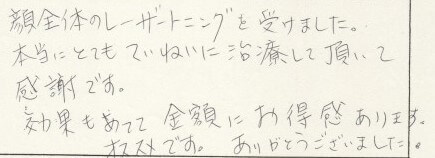 顔全体のレーザートニングを受けました。
本当にとてもていねいに治療して頂いて
感謝です。
効果もあって金額にお得感あります。
オススメです。ありがとうございました。